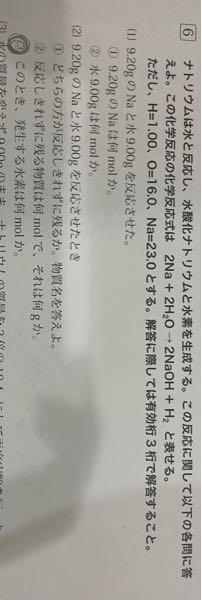 6 ナトリウムは水と反応し、水酸化ナトリウムと水素を生成する。この反応に関して以下の各問に答
えよ。この化学反応の化学反応式は 2Na + 2H₂O → 2NaOH + H₂ と表せる。
ただし、H=1.00、O=16.0、Na=23.0 とする。解答に際しては有効桁3桁で解答すること。
(1) 9.20gのNaと水9.00gを反応させた。
① 9.20gのNaは何molか。
② 水9.00gは何molか。
(2) 9.20gのNaと水9.00gを反応させたとき
① どちらの方が反応しきれずに残るか。物質名を答えよ。
② 反応しきれずに残る物質は何molで、それは何gか。
③ このとき、発生する水素は何molか。
(3) 水の質量を変えず9.00gのまま、ナトリウムの質量を2倍の18.4